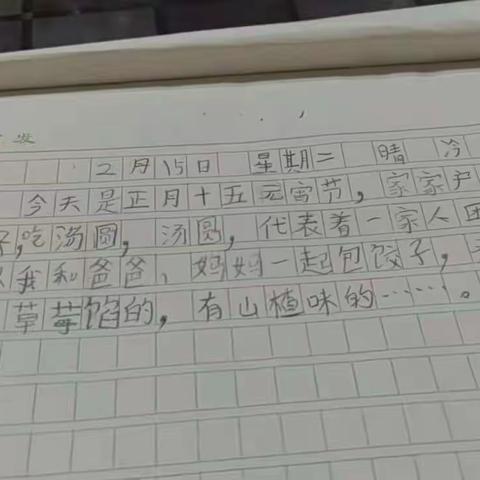 发
2月15日 星期二 晴 冷
今天是正月十五元宵节，家家户
吃汤圆，汤圆，代表着一家人团
我和爸爸、妈妈一起包饺子，
草莓馅的，有山楂味的……。